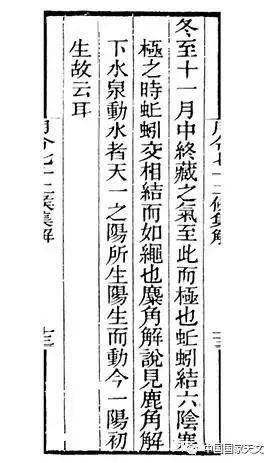 冬至十一月中終藏之氣至此而極也蚯蚓結六陰寒
極之時蚯蚓交相結而如繩也麋角解說見鹿角解
下水泉動水者天一之陽所生陽生而動今一陽初
生故云耳
月令七十二候集解
十三
中国国家天文